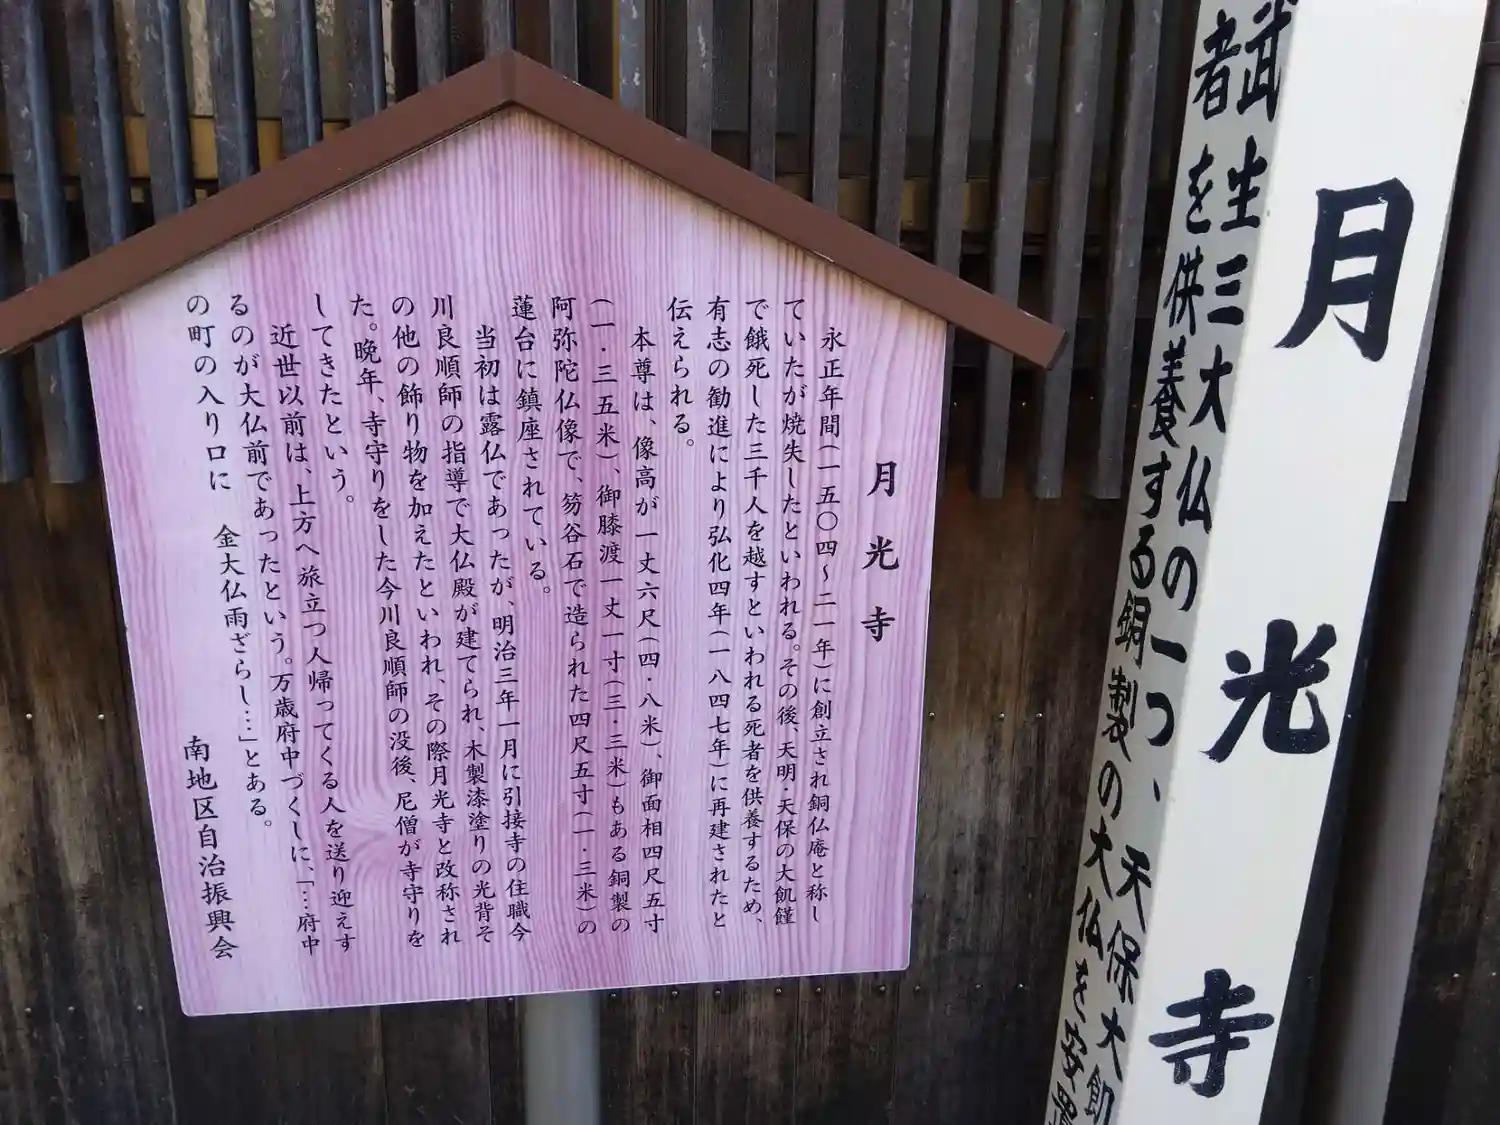 月光寺
永正年間(一五〇四～二一年)に創立され銅仏庵と称し
ていたが焼失したといわれる。その後、天明・天保の大飢饉
で餓死した三千人を越すといわれる死者を供養するため、
有志の勧進により弘化四年(一八四七年)に再建されたと
伝えられる。
本尊は、像高が一丈六尺(四・八米)、御面相四尺五寸
(一・三五米)、御膝渡一丈一寸(三・三米)もある銅製の
阿弥陀仏像で、笏谷石で造られた四尺五寸(一・三米)の
蓮台に鎮座されている。
当初は露仏であったが、明治三年一月に引接寺の住職今
川良順師の指導で大仏殿が建てられ、木製漆塗りの光背そ
の他の飾り物を加えたといわれ、その際月光寺と改称され
た。晩年、寺守りをした今川良順師の没後、尼僧が寺守りを
してきたという。
近世以前は、上方へ旅立つ人帰ってくる人を送り迎えす
るのが大仏前であったという。万歳府中づくしに、「…府中
の町の入り口に 金大仏雨ざらし…」とある。
南地区自治振興会
月光寺
武生三大仏の一つ、天保大飢
者を供養する銅製の大仏を安置